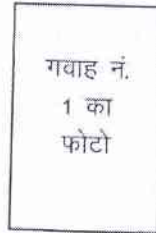 गवाह नं.
1 का
फोटो